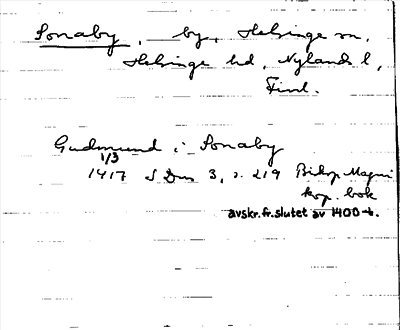 Sonaby, by, Helsinge sn,
Helsinge hd, Nylands l,
Finl.
Gudmund i Sonaby
1/3
1417 S Dns 3, s. 219 Biskop Magni
kop. bok
avskr. fr. slutet av 1400-t.